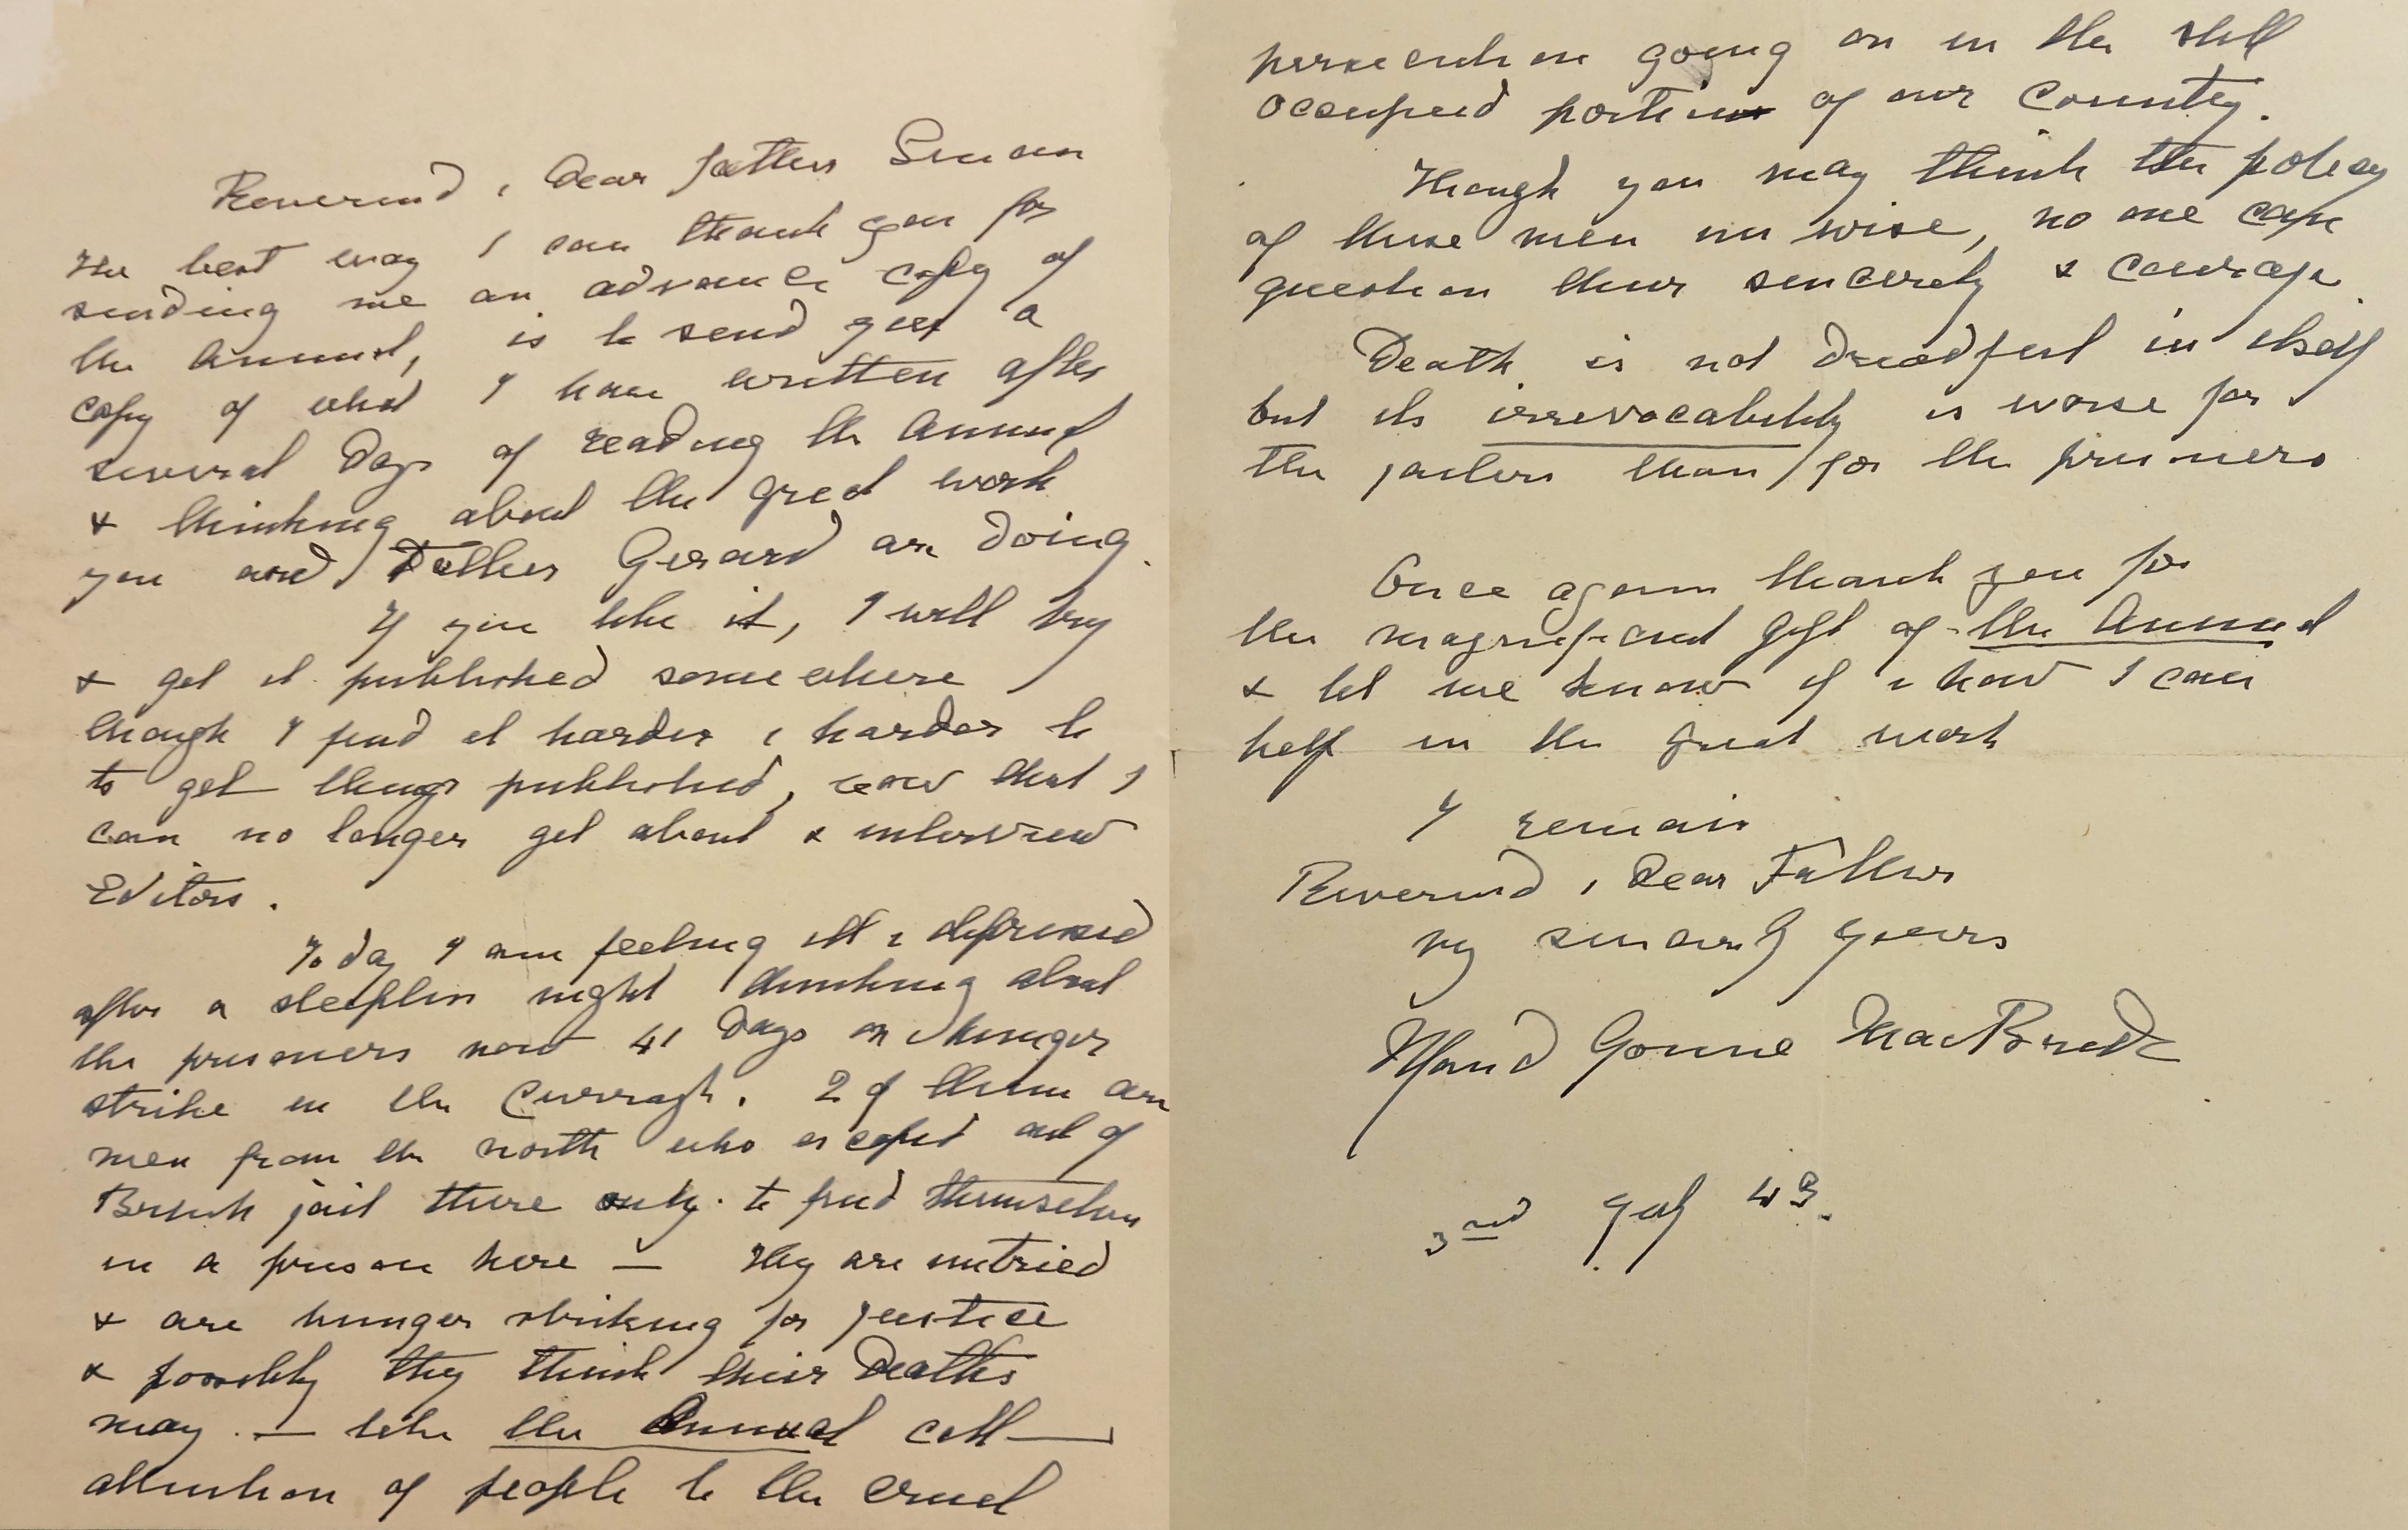 Reverend & Dear Father Senan
The best way I can thank you for
sending me an advance copy of
the Annual, is to send you a
copy of what I have written after
several days of reading the Annual
& thinking about the great work
you and Father Gerard are doing.
If you like it, I will try
& get it published somewhere
though I find it harder & harder to
to get things published, now that I
can no longer get about & interview
Editors.
To day I am feeling ill & depressed
after a sleepless night thinking about
the prisoners now 41 days on hunger
strike in the Curragh. 2 of them are
men from the north who escaped out of
British jail there only to find themselves
in a prison here — They are untried
& are hunger striking for justice
& possibly they think their Deaths
may — like the Annual call —
attention of people to the cruel
persecution going on in the still
occupied portion of our County.
Though you may think the policy
of these men unwise, no one can
question their sincerety & courage.
Death is not dreadful in itself
but its irrevocability is worse for
the jailers than for the prisoners
Once again thank you for
the magnificent gift of the Annual
& let me know if & how I can
help in the great work
I remain
Reverend & Dear Father
vry sincerely yours
Maud Gonne MacBride
3nd 43.